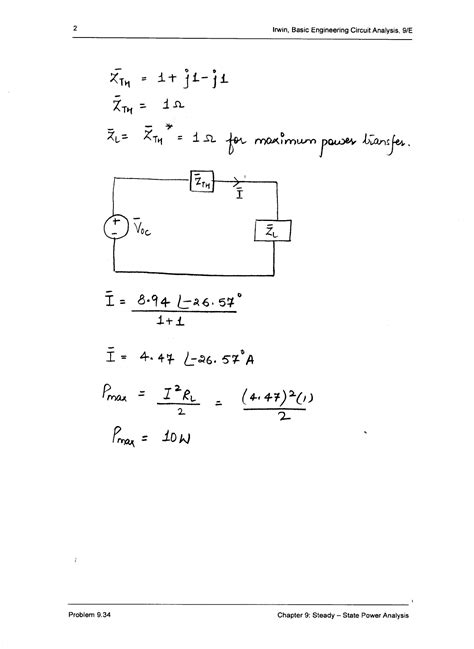 2 Irwin, Basic Engineering Circuit Analysis, 9/E
Z̄TH = 1 + j1 - j1
Z̄TH = 1 Ω
Z̄L = Z̄TH* = 1 Ω for maximum power transfer.
Z̄TH
Ī
+
-
V̄OC
Z̄L
Ī = 8.94 ∠-26.57°
1+1
Ī = 4.47 ∠-26.57° A
Pmax = I²RL = (4.47)²(1)
2 2
Pmax = 10W
Problem 9.34 Chapter 9: Steady – State Power Analysis